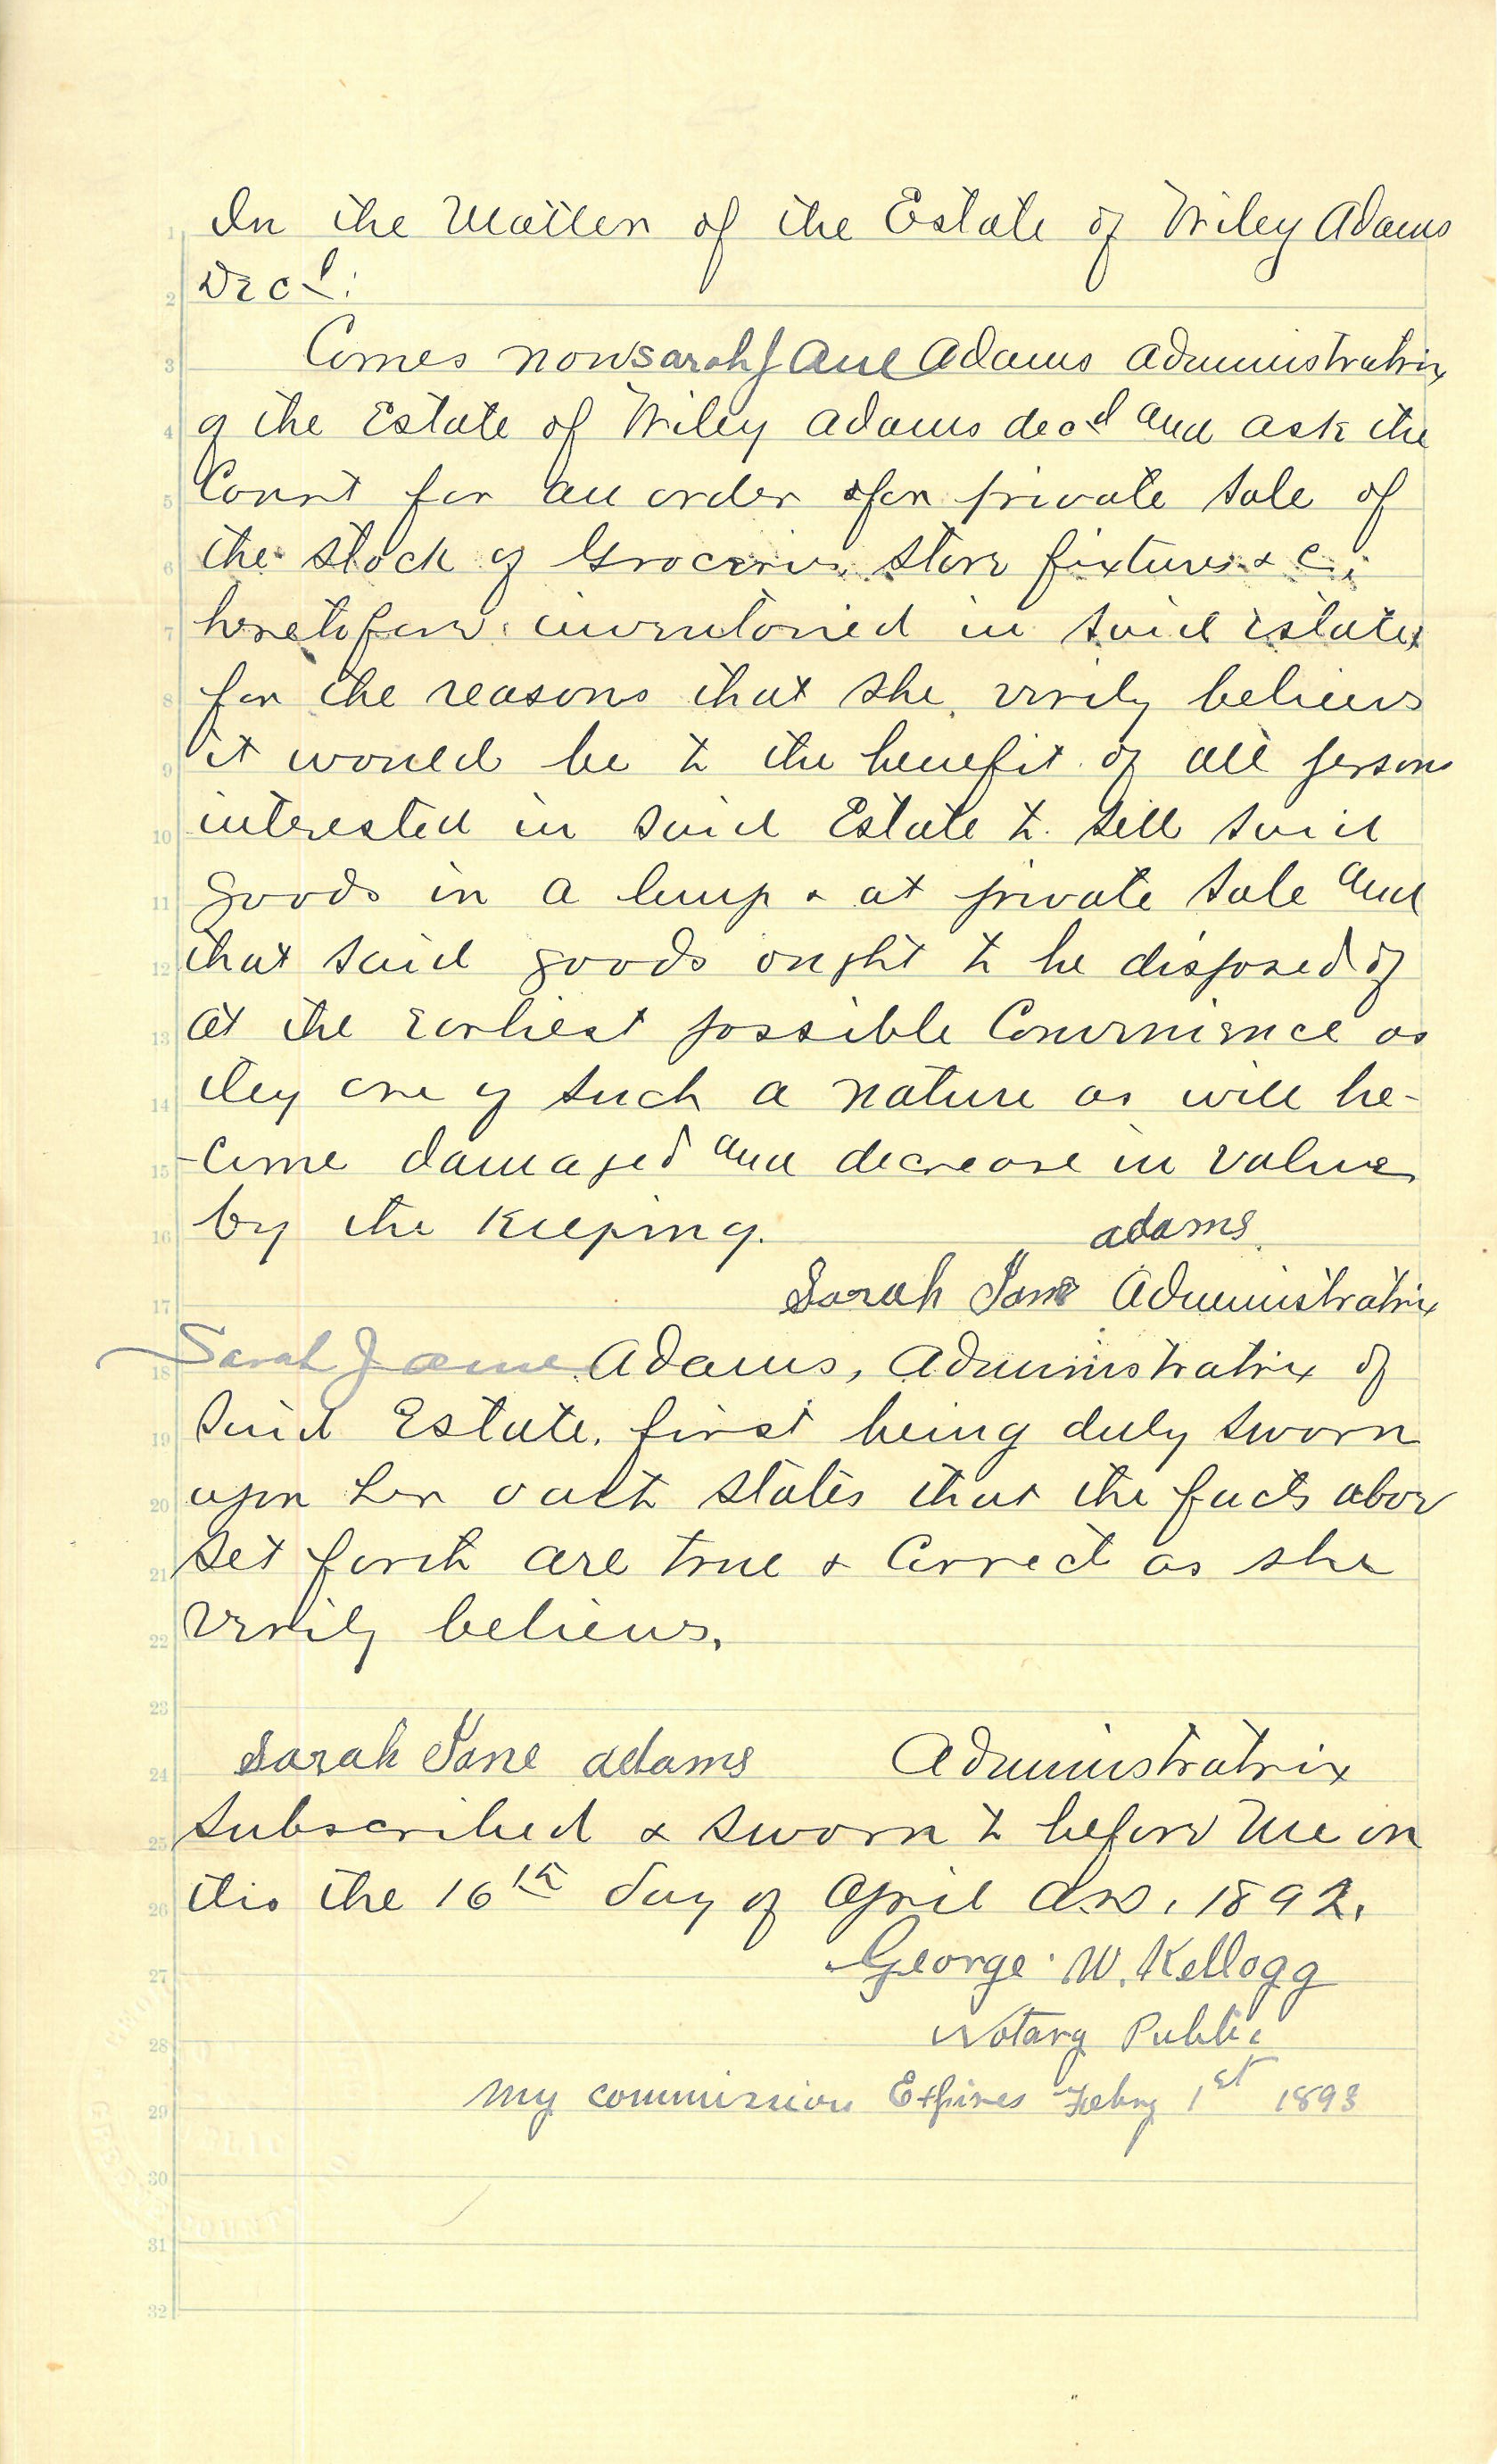 In the Matter of the Estate of Wiley Adams
Decd:
Comes now Sarah Jane Adams Administratrix
of the Estate of Wiley Adams decd and ask the
Court for an order for private sale of
the stock of Groceries, store fixtures & c;
heretofore inventoried in said estate,
for the reasons that she verily believes
it would be to the benefit of all persons
interested in said Estate to sell said
goods in a lump & at private sale and
that said goods ought to be disposed of
at the earliest possible Convenience as
they are of such a nature as will be-
-come damaged and decrease in value
by the keeping.
adams
Sarah Jane Administratrix
Sarah Jane Adams, Administratrix of
said Estate, first being duly sworn
upon her oath states that the facts above
set forth are true & Correct as she
verily believes.
Sarah Jane adams Administratrix
Subscribed & sworn to before me on
this the 16th day of April A.D. 1892.
George W. Kellogg
Notary Public
My commission Expires Febry 1st 1893
1
2
3
4
5
6
7
8
9
10
11
12
13
14
15
16
17
18
19
20
21
22
23
24
25
26
27
28
29
30
31
32